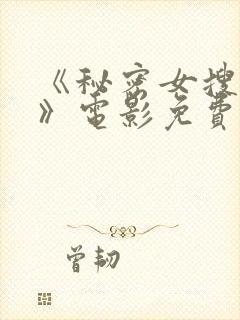 《秘密女搜
》电影免费
曾韧